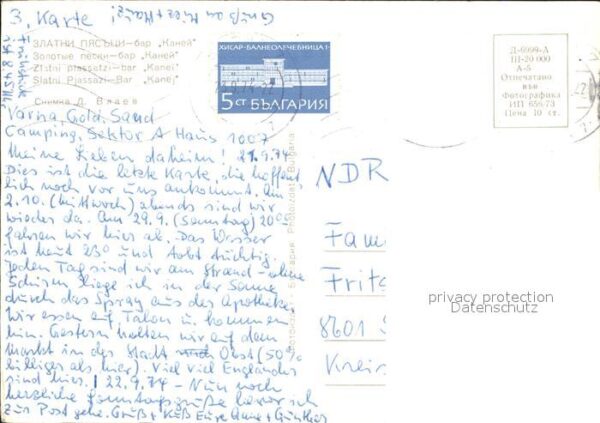 3. Karte
Gruß an
Frühstück
ist 8.45
ЗЛАТНИ ПЯСЪЦИ-бар „Каней"
Золотые пески-бар „Каней"
Zlstni pjassatzi-bar "Kanej"
Slatni Pjassazi-Bar "Kanej"
Снимка Д. Влаев
ХИСАР-БАЛНЕОЛЕЧЕБНИЦА 1-
5 СТ БЪЛГАРИЯ
Д-6999-А
III-20 000
А-5
Отпечатано
във
Фотографика
ИП 656-73
Цена 10 ст.
Varna, Gold. Sand
Camping, Sektor A Haus 1007
Meine Lieben daheim! 21.9.74
Dies ist die letzte Karte, die hoffent
lich noch vor uns ankommt. Am
2.10. (Mittwoch) abends sind wir
wieder da. Am 29.9. (Sonntag) 20⁰⁰
fahren wir hier ab. Das Wasser
ist heut 23° und tobt tüchtig.
Jeden Tag sind wir am Strand - ohne
Schirm liege ich in der Sonne
durch das Spray aus der Apotheke.
Wir essen auf Talon u. kommen
hin. Gestern holten wir auf dem
Markt in der Stadt Obst (50%
billiger als hier). Viel viel Engländer
sind hier. 22.9.74 - Nun noch
herzliche Sonntagsgrüße bevor ich
zur Post gehe. Gruß + Kuß Eure Anne + Günther
България
Photo/data Bulgaria
NDR
Fam
Fritz
8601
Kreis
privacy protection
Datenschutz